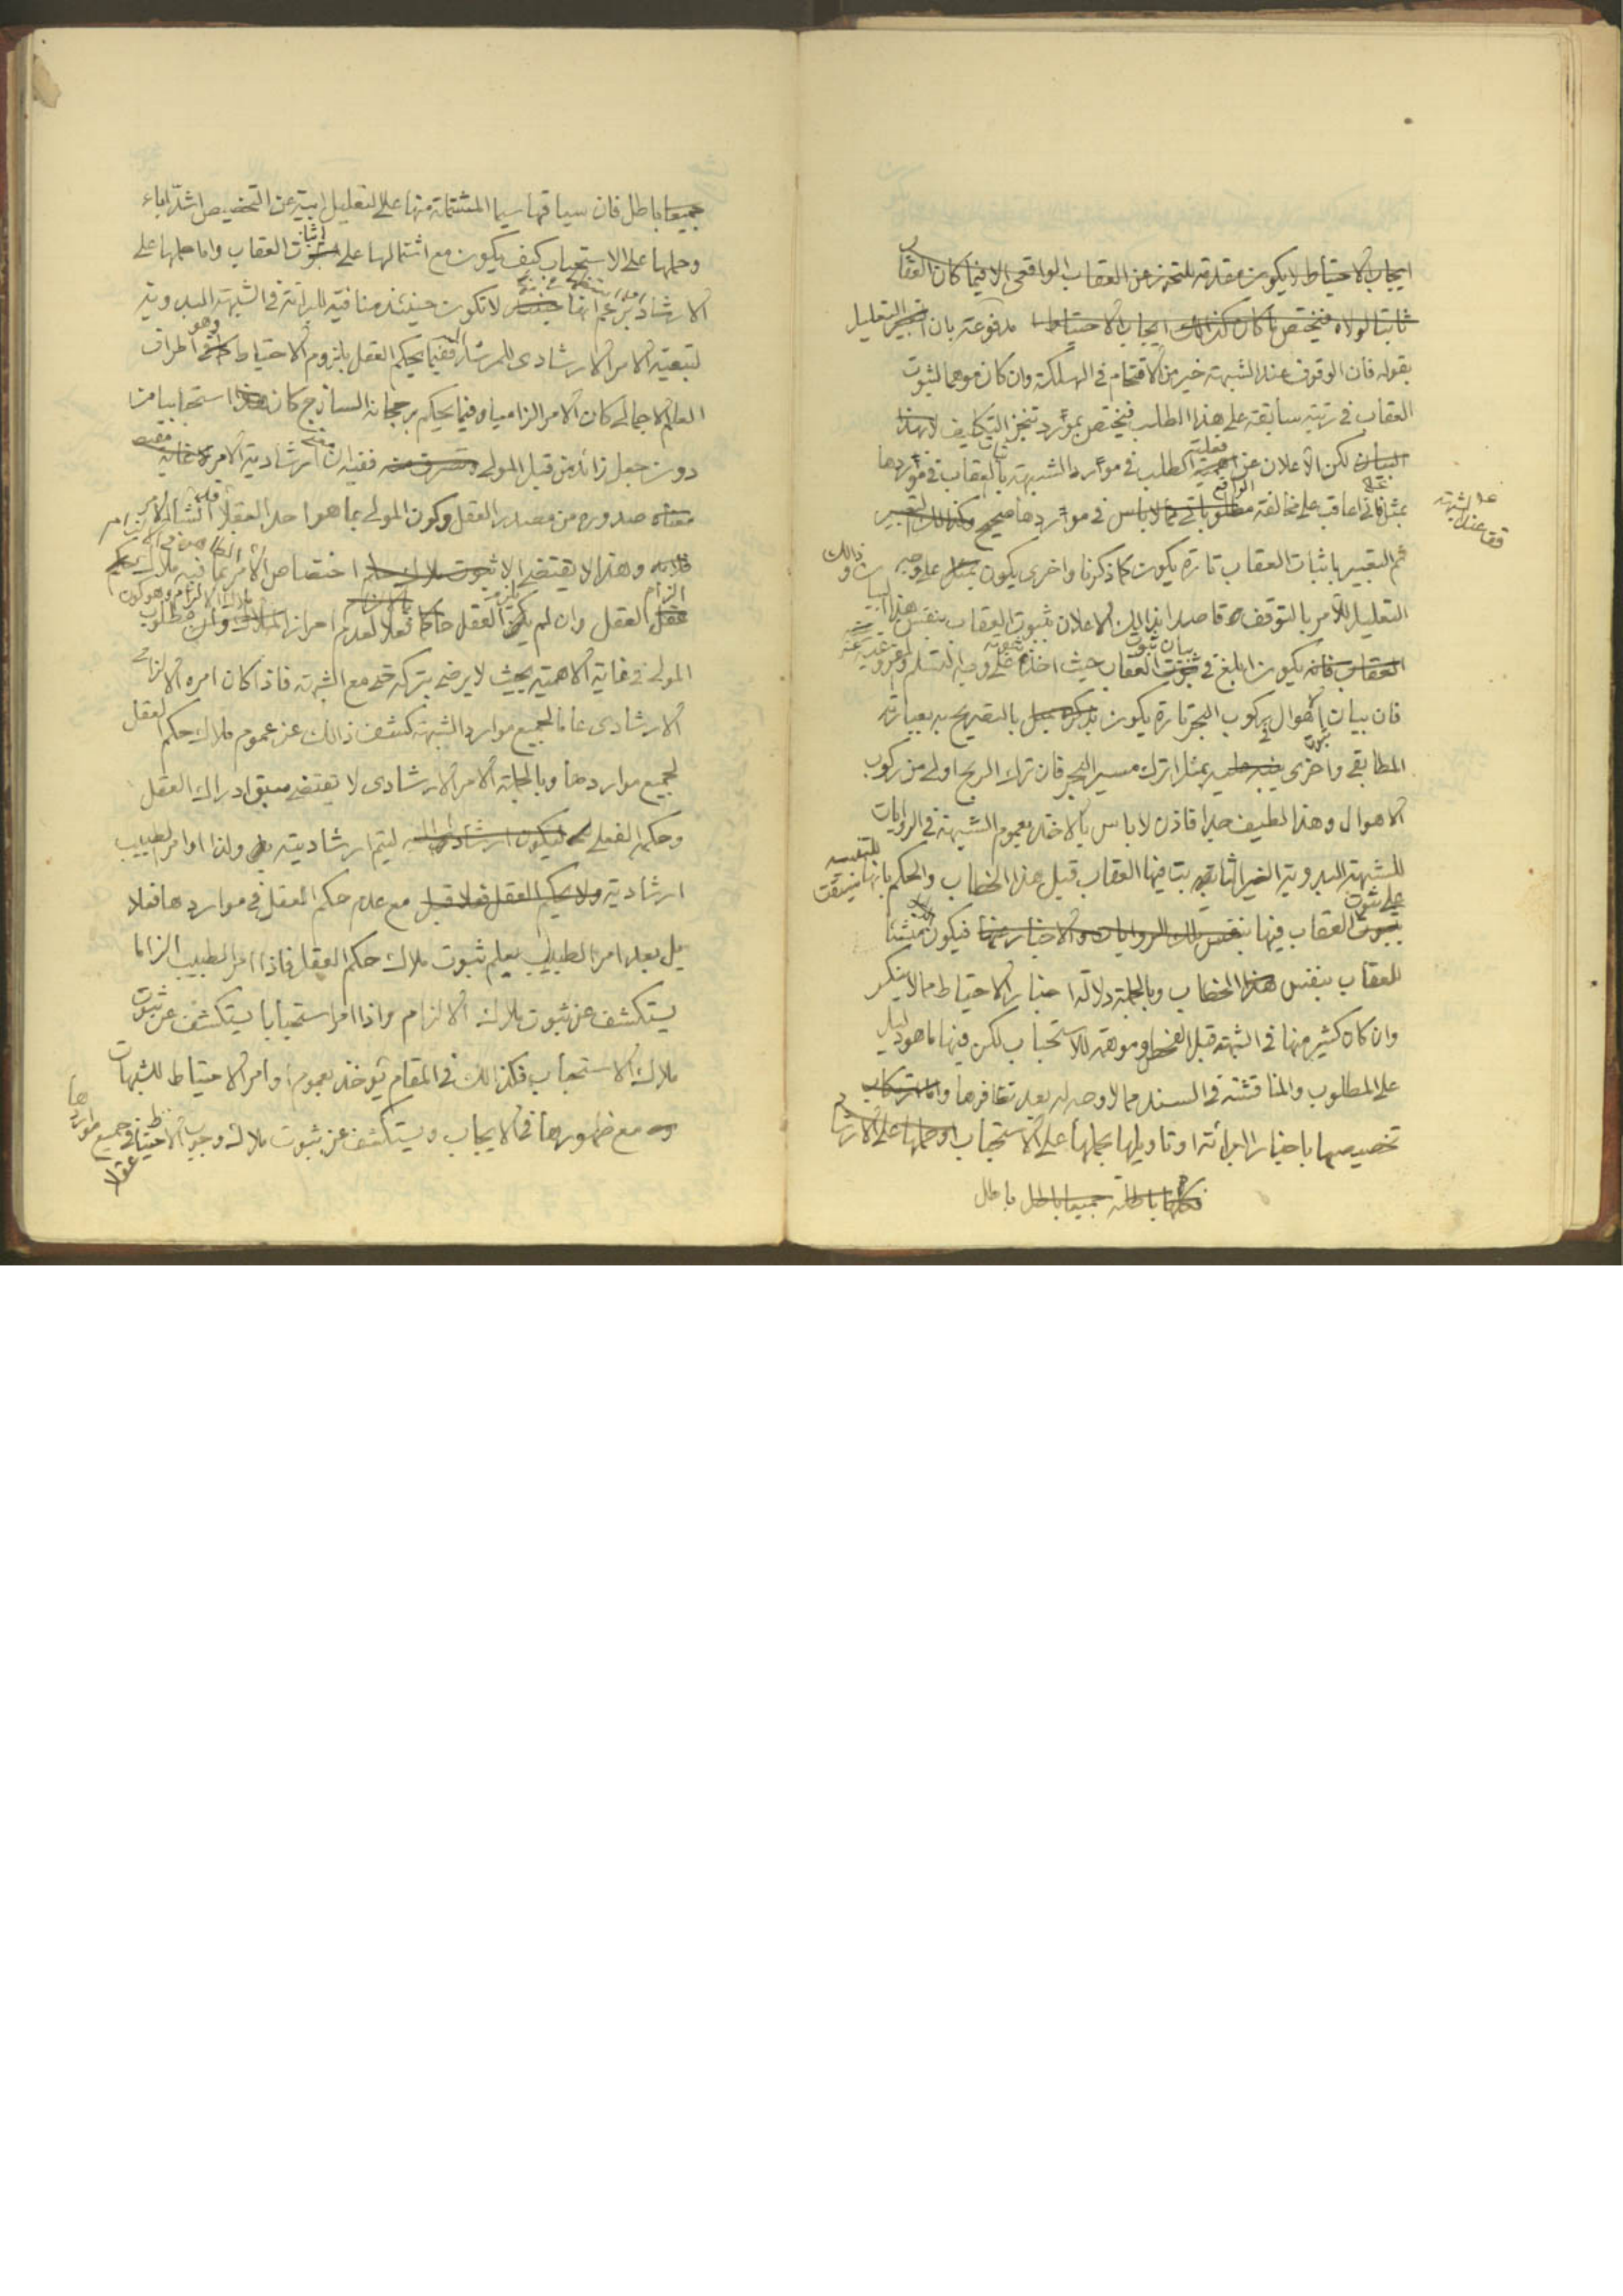 ايجاب الاحتياط لا يكون مقدمة للتحرز عن العقاب الواقعى الا فيما كان العقاب
ثابتا لولاه فيختص بما كان كذلك ايجاب الاحتياط مدفوعة بان التعليل
بقوله فان الوقوف عند الشبهة خير من الاقتحام في الهلكة وان كان موهما لثبوت
العقاب في رتبة سابقة على هذا الطلب فيختص بموارد تنجز التكليف
البيان لكن الاعلان عن فعلية الطلب في موارد الشبهة باثبات العقاب في مواردها
بمثل فانى اعاقب على مخالفة الواقع لا باس في مواردها صحيح
على الشبهة
قف عند
ثم التعبير باثبات العقاب تارة يكون كما ذكرنا واخرى يكون على وجه
التعليل للامر بالتوقف قاصدا بذلك الاعلان بثبوت العقاب بنفس هذا البيان وذلك
يكون ابلغ في بيان ثبوت العقاب حيث اخذ
فان بيان اهوال ركوب البحر تارة يكون بالتصريح به بعبارته
المطابقى واخرى يكون بمثل اترك مسير البحر فان ترك الربح اولى من ركوب
الاهوال وهذا لطيف جدا فاذن لا باس بالاخذ بعموم الشبهة في الروايات
للشبهة البدوية الغير الثابت فيها العقاب قبل هذا الخطاب والحكم بانها
على ثبوت العقاب فيها بنفس تلك الروايات والاخبار عنها فيكون منشئا
للعقاب بنفس هذا الخطاب وبالجملة دلالة اخبار الاحتياط مما لا ينكر
وان كان كثير منها في الشبهة قبل الفحص وموهمة للاستحباب لكن فيها ما هو دليل
على المطلوب والمناقشة في السند مما لا وجه له بعد تظافرها واما
تخصيصها باخبار البرائة او تاويلها بحملها على الاستحباب او حملها على الارشاد
فكلها باطلة جميعا باطل باطل
جميعا باطل فان سياقها سيما المشتملة منها على التعليل ابية عن التخصيص اشد اباء
وحملها على الاستحباب كيف يكون مع اشتمالها على اثبات العقاب واما حملها على
الارشاد بزعم انها لا تكون حينئذ منافية للبرائة في الشبهة البدوية
لتبعية الامر الارشادى للمرشد اليه ففيما يحكم العقل بلزوم الاحتياط وهو اطراف
العلم الاجمالى كان الامر الزاميا وفيما يحكم برجحانه الساذج كان استحبابيا من
دون جعل زائد من قبل المولى ففيه ان ارشادية الامر
صدوره من مصدر العقل وكون المولى بما هو احد العقلاء
وهذا لا يقتضى الا اختصاص الامر بما فيه ملاك
الزام العقل وان لم يكن العقل حاكما فعلا لعدم احرازه الملاك
المولى في غاية الاهمية بحيث لا يرضى بتركه حتى مع الشبهة فاذا كان امره الالزامى
الارشادى عاما لجميع موارد الشبهة كشف ذلك عن عموم ملاك حكم العقل
لجميع مواردها وبالجملة الامر الارشادى لا يقتضى سبق ادراك العقل
وحكمه الفعلى ليتم ارشاديته ولذا اوامر الطبيب
ارشادية ولا يحكم العقل فعلا قبل مع عدم حكم العقل في مواردها فعلا
بل بعد امر الطبيب يعلم ثبوت ملاك حكم العقل فاذا امر الطبيب الزاما
يستكشف عن ثبوت ملاك الالزام واذا امر استحبابا يستكشف عن ثبوت
ملاك الاستحباب فكذلك في المقام يؤخذ بعموم اوامر الاحتياط للشبهات
مع ظهورها في الايجاب ويستكشف عن ثبوت ملاك وجوب الاحتياط في جميع مواردها
عقلا